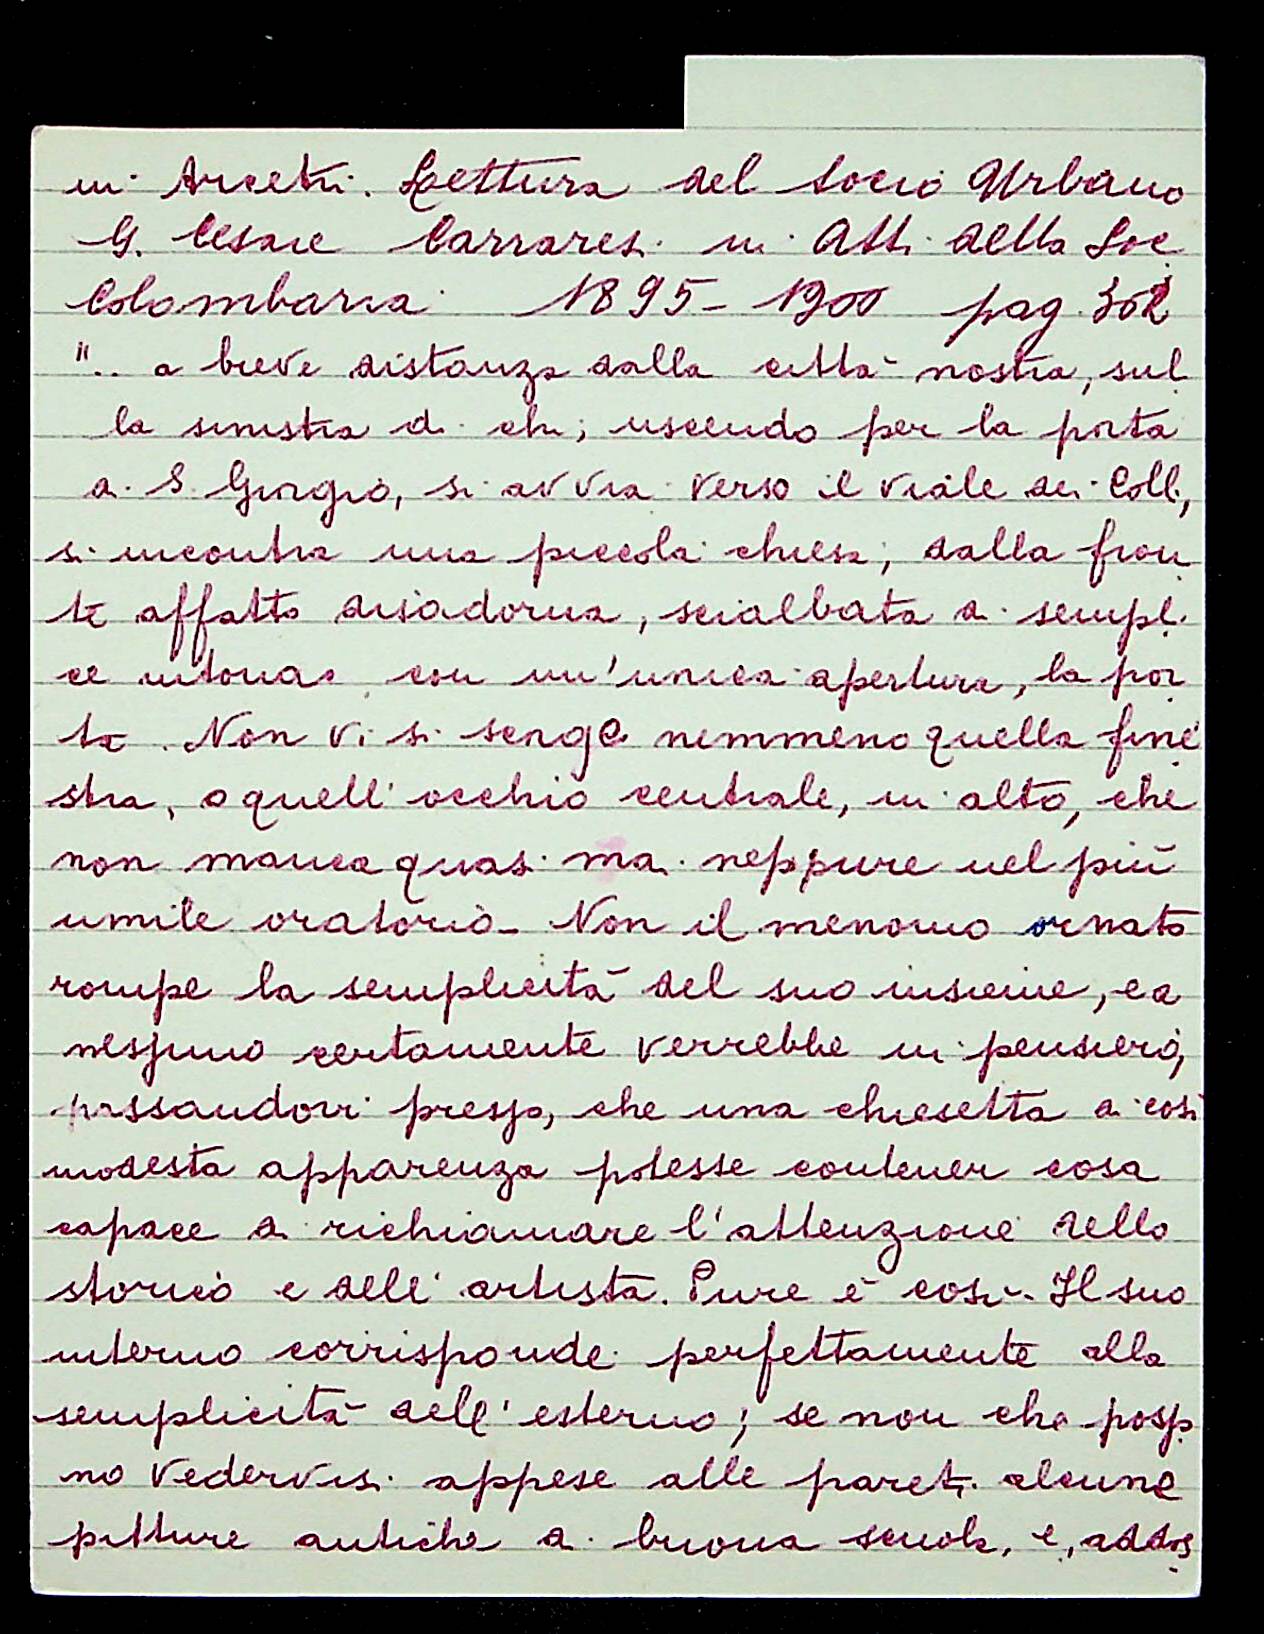 in Arcetri. Lettura del Socio Urbano
G. Cesare Carraresi in Atti della Soc
Colombaria 1895-1900 pag. 302
".. a breve distanza dalla città nostra, sul
la sinistra di chi, uscendo per la porta
a S. Giorgio, si avvia verso il viale dei Colli,
si incontra una piccola chiesa, dalla fron
te affatto disadorna, scialbata di sempli
ce intonaco con un'unica apertura, la por
ta. Non vi si scorge nemmeno quella fine
stra, o quell'occhio centrale, in alto, che
non manca quasi mai neppure nel più
umile oratorio - Non il menomo ornato
rompe la semplicità del suo insieme, e a
nessuno certamente verrebbe in pensiero,
passandovi presso, che una chiesetta di così
modesta apparenza potesse contener cosa
capace di richiamare l'attenzione dello
storico e dell'artista. Pure è così. Il suo
interno corrisponde perfettamente alla
semplicità dell'esterno; se non che posso
no vedervisi appese alle pareti alcune
pitture antiche di buona scuola, e, addos